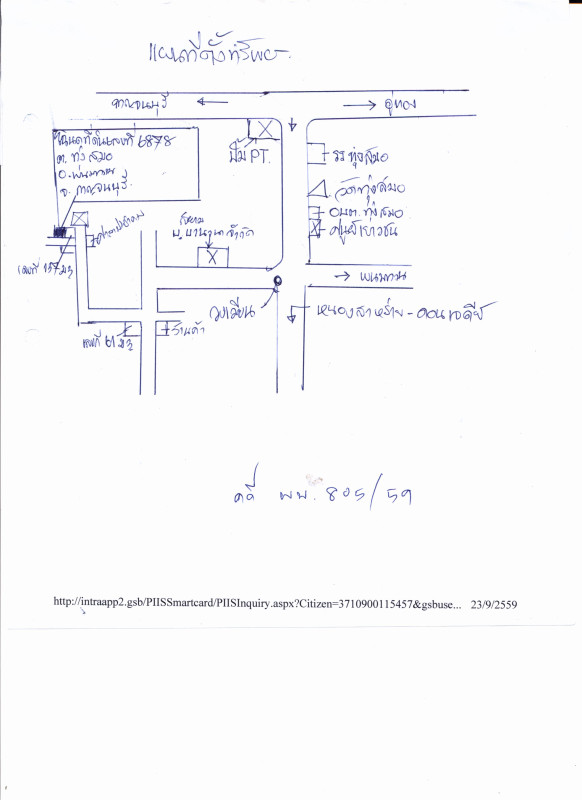 แผนที่ตั้งทรัพย์
กาญจนบุรี
อู่ทอง
โฉนดที่ดินเลขที่ 6878
ต. ทุ่งสมอ
อ. พนมทวน
จ. กาญจนบุรี
ปั๊ม PT.
รร ทุ่งสมอ
วัดทุ่งสมอ
อบต. ทุ่งสมอ
ศูนย์เยาวชน
โรงงาน
จำกัด
เลขที่ 157 ม3
พนมทวน
วงเวียน
หนองสาหร่าย - ดอนเจดีย์
ร้านค้า
เลขที่ 61 ม3
คดี พบ. 805/59
http://intraapp2.gsb/PIISSmartcard/PIISInquiry.aspx?Citizen=3710900115457&gsbuse... 23/9/2559